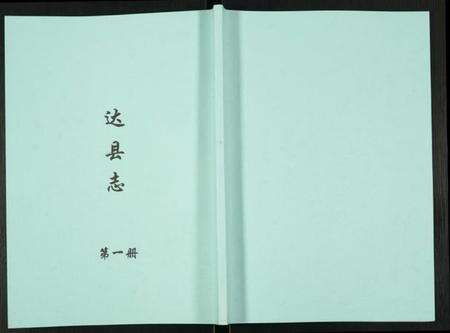 达县志
第一册